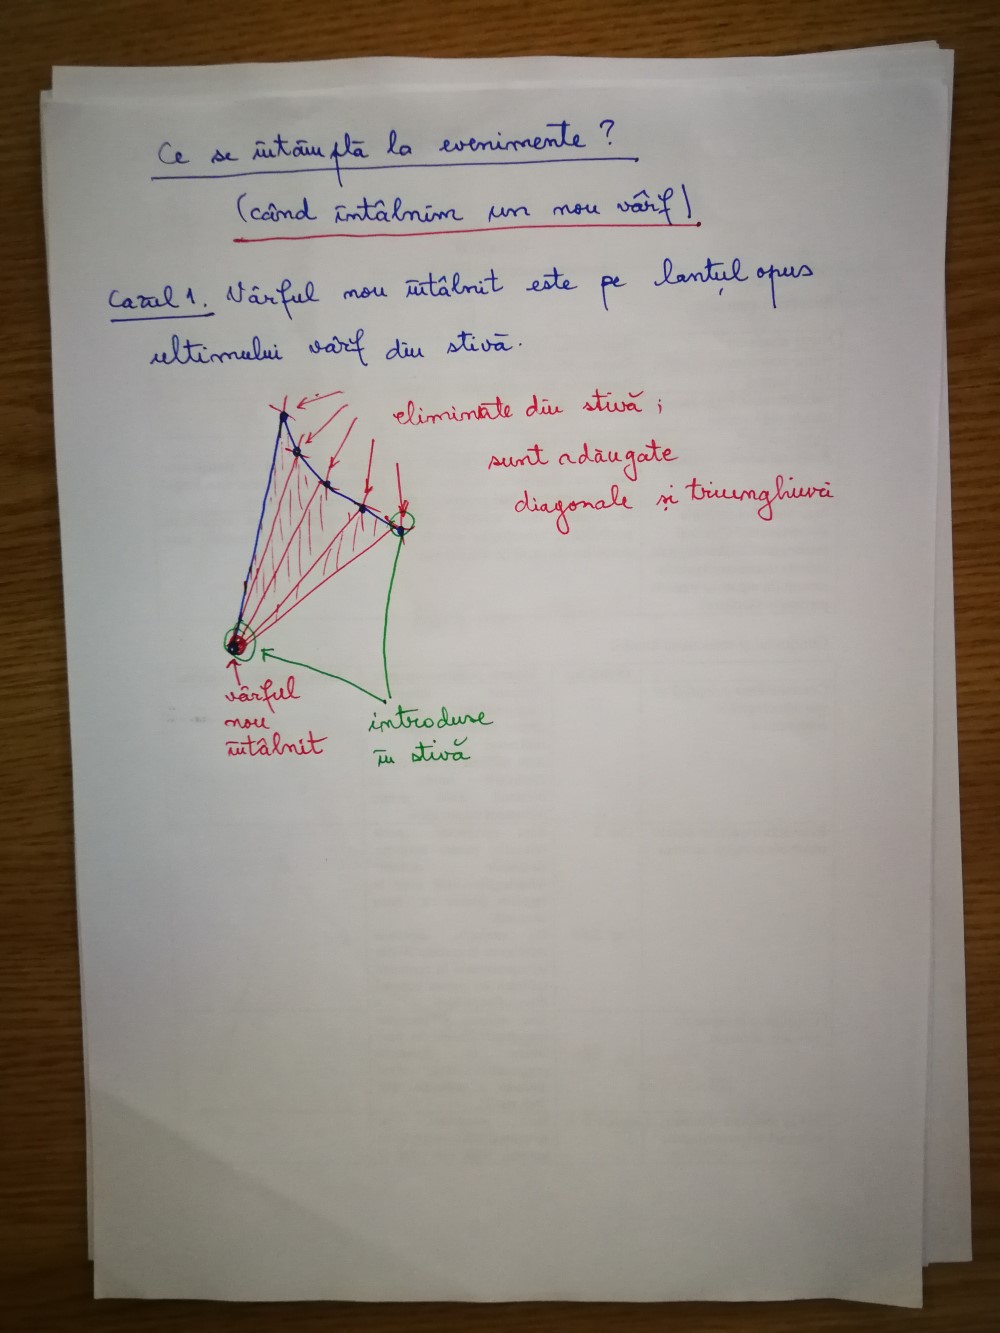 Ce se întâmplă la evenimente?
(când întâlnim un nou vârf)
Cazul 1. Vârful nou întâlnit este pe lanțul opus
ultimului vârf din stivă.
eliminate din stivă;
sunt adăugate
diagonale și triunghiuri
vârful
nou
întâlnit
introduse
în stivă